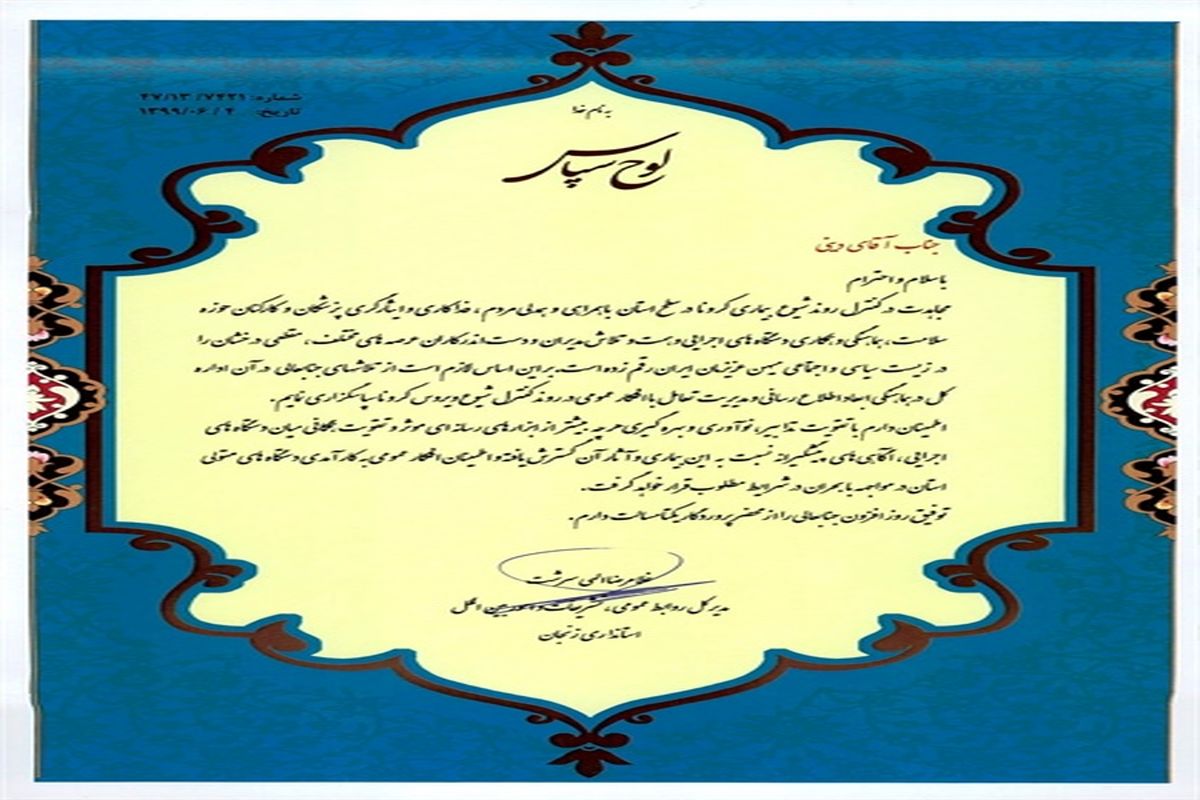 شماره: ۴۷/۱۳/۷۴۲۱
تاریخ: ۱۳۹۹/۰۶/۴
به نام خدا
لوح سپاس
جناب آقای دینی
با سلام و احترام
مجاهدت در کنترل روند شیوع بیماری کرونا در سطح استان با همراهی و همدلی مردم، فداکاری و ایثارگری پزشکان و کارکنان حوزه
سلامت، هماهنگی و همکاری دستگاه های اجرایی و همت و تلاش مدیران و دست اندرکاران عرصه های مختلف، مقطعی درخشان را
در زیست سیاسی و اجتماعی میهن عزیزمان ایران رقم زده است. بر این اساس لازم است از تلاشهای جنابعالی در آن اداره
کل در هماهنگی ابعاد اطلاع رسانی و مدیریت تعامل با افکار عمومی در روند کنترل شیوع ویروس کرونا سپاسگزاری نمایم.
اطمینان دارم با تقویت تدابیر، نوآوری و بهره گیری هرچه بیشتر از ابزارهای رسانه ای موثر و تقویت همگانی میان دستگاه های
اجرایی، آگاهی های پیشگیرانه نسبت به این بیماری و آثار آن گسترش یافته و اطمینان افکار عمومی به کارآمدی دستگاه های متولی
استان در مواجهه با بحران در شرایط مطلوب قرار خواهد گرفت.
توفیق روز افزون جنابعالی را از محضر پروردگار یکتا مسالت دارم.
غلامرضا الهی سرشت
مدیرکل روابط عمومی، تشریفات و امور بین الملل
استانداری زنجان